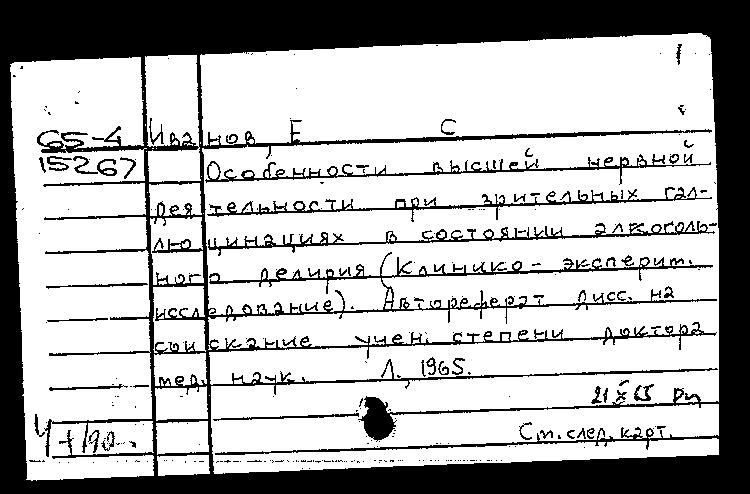 1
65-4 Иванов, Е С
15267 Особенности высшей нервной
деятельности при зрительных гал-
люцинациях в состоянии алкоголь-
ного делирия (Клинико-эксперит.
исследование). Автореферат дисс. на
соискание учен. степени доктора
мед. наук. Л., 1965.
21 X 65
См. след. карт.